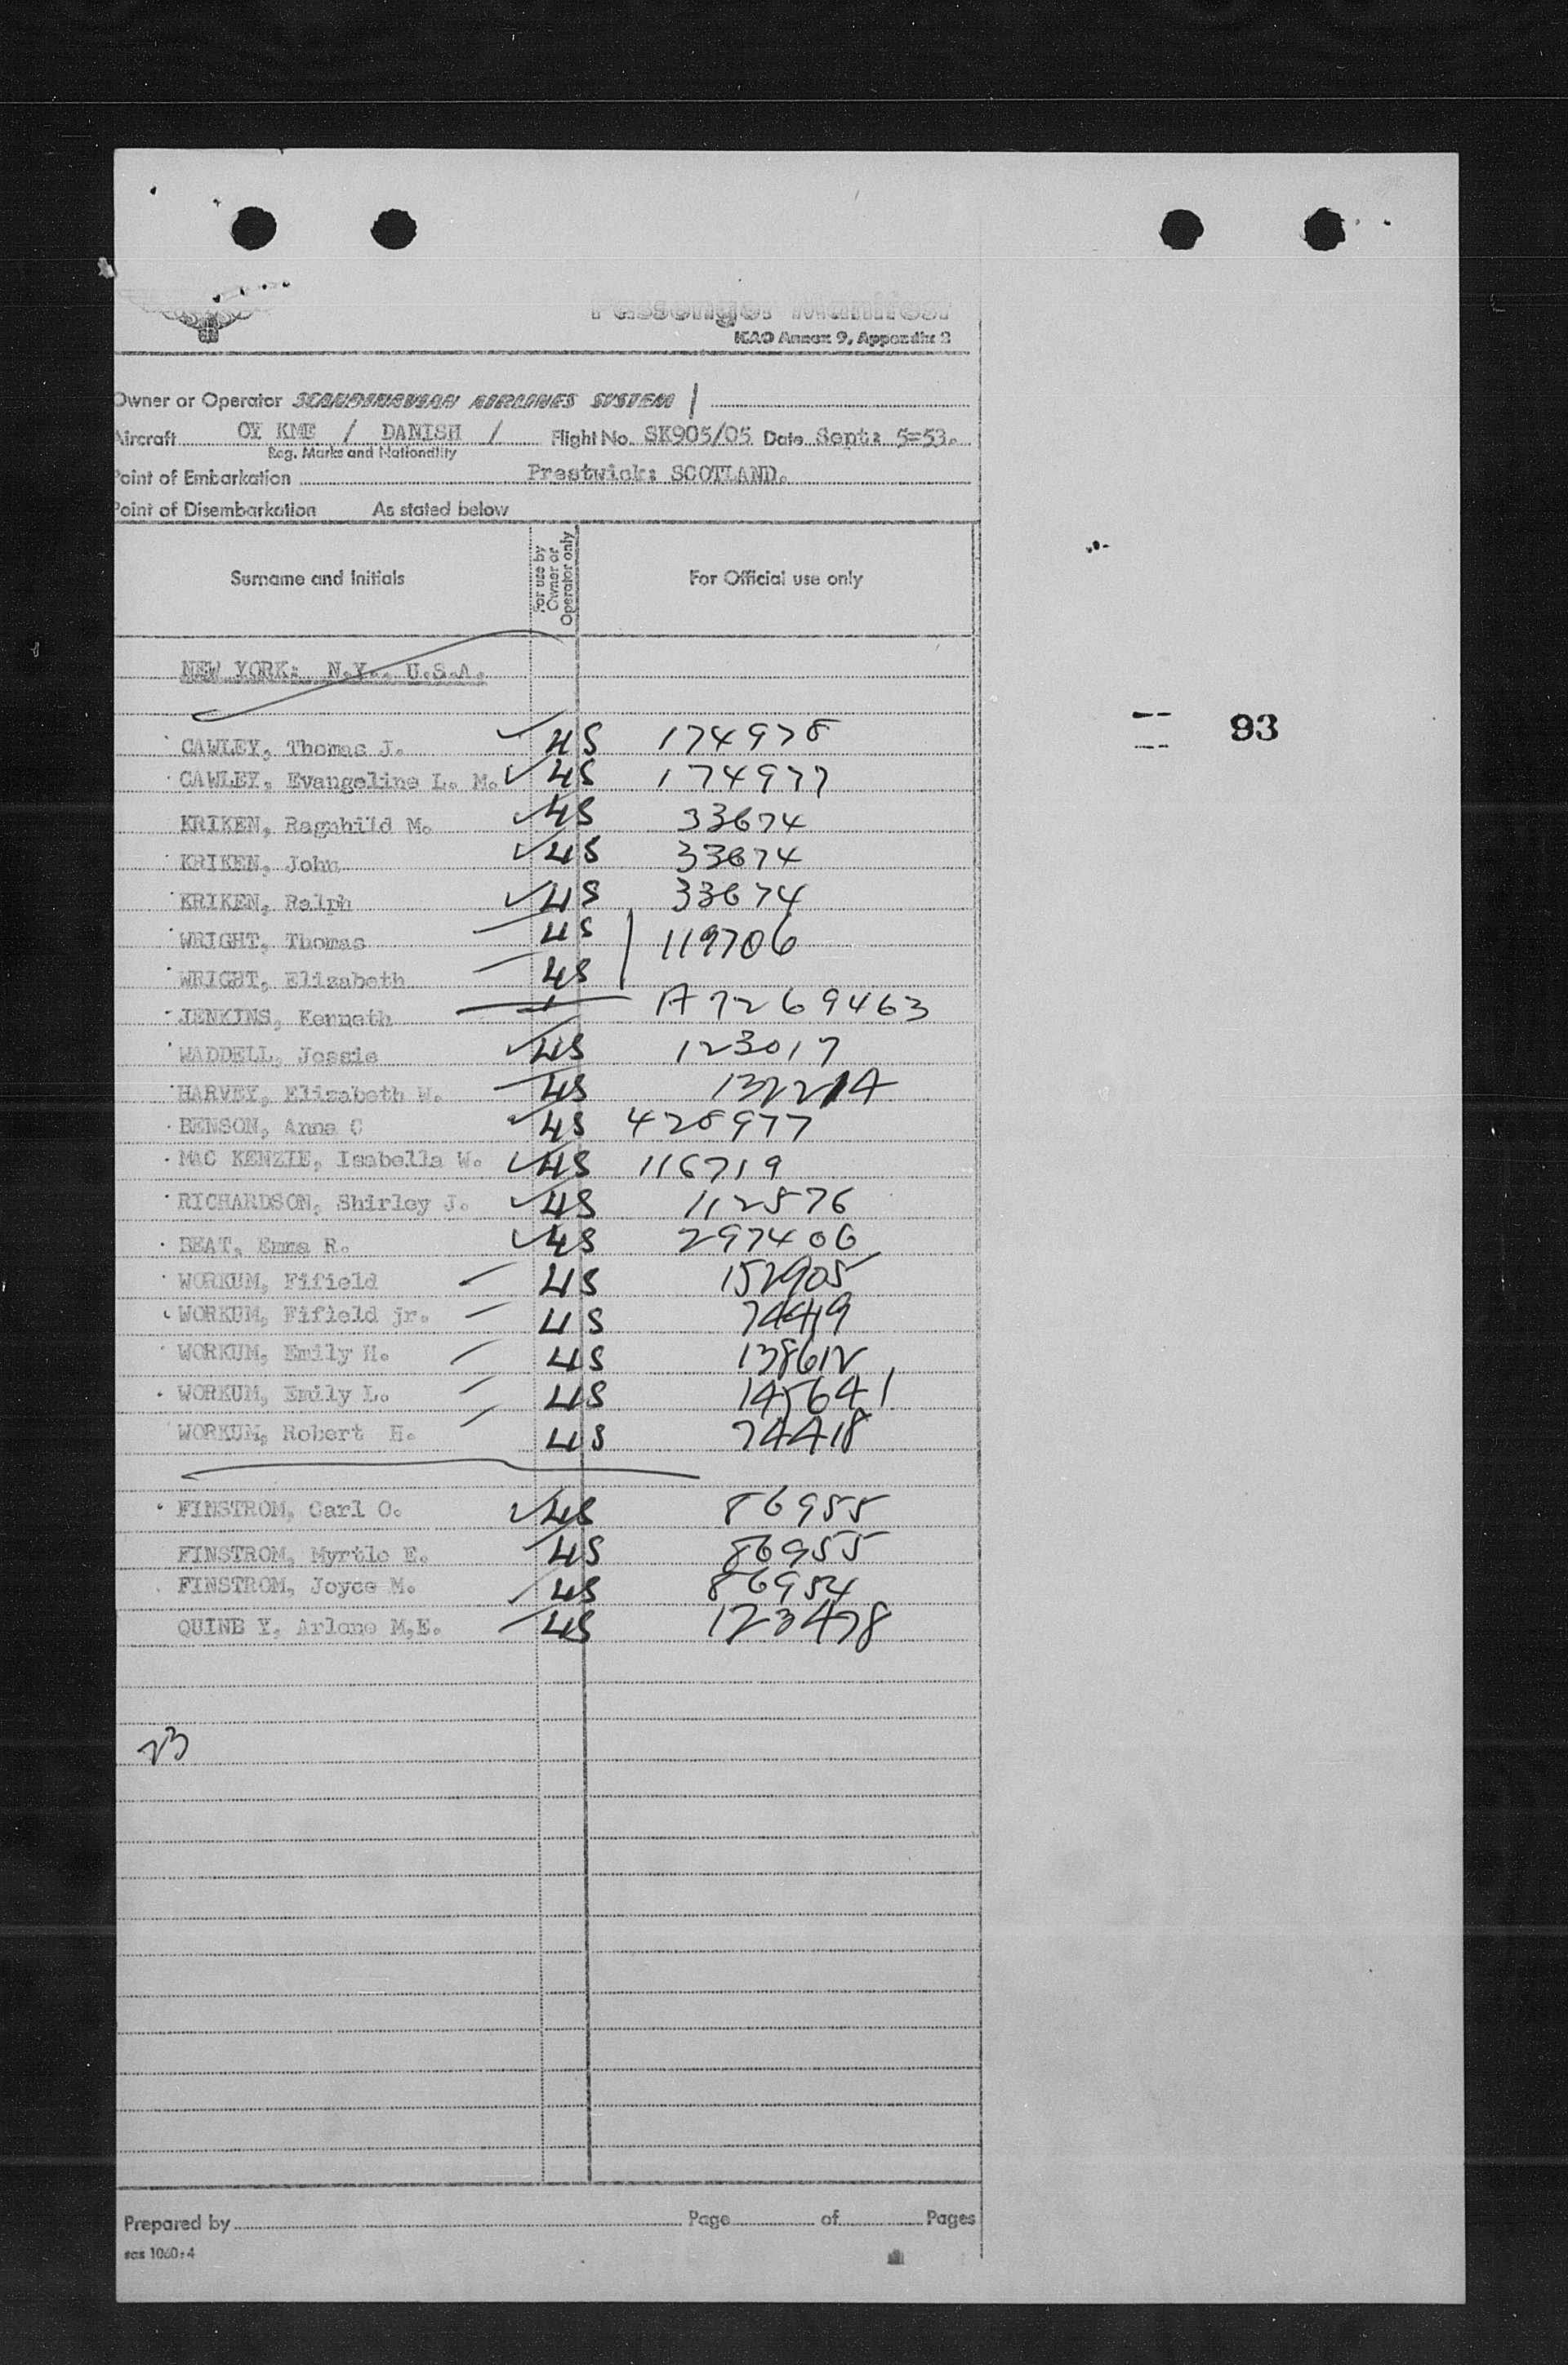 Passenger Manifest
ICAO Annex 9, Appendix 2
Owner or Operator SCANDINAVIAN AIRLINES SYSTEM
Aircraft OY KME / DANISH / Flight No. SK905/05 Date Sept: 5=53.
Reg. Marks and Nationality
Point of Embarkation Prestwick: SCOTLAND.
Point of Disembarkation As stated below
Surname and Initials For use by Owner or Operator only For Official use only
NEW YORK: N.Y., U.S.A.
93
CAWLEY, Thomas J. US 174978
CAWLEY, Evangeline L. M. US 174977
KRIKEN, Ragnhild M. US 33674
KRIKEN, John US 33674
KRIKEN, Ralph US 33674
WRIGHT, Thomas US 119706
WRIGHT, Elizabeth US
JENKINS, Kenneth A7269463
WADDELL, Jessie US 123017
HARVEY, Elizabeth W. US 132214
BENSON, Anna C US 428977
MAC KENZIE, Isabella W. US 116719
RICHARDSON, Shirley J. US 112576
BEAT, Emma R. US 297406
WORKUM, Fifield US 152905
WORKUM, Fifield jr. US 74419
WORKUM, Emily H. US 138612
WORKUM, Emily L. US 145641
WORKUM, Robert H. US 74418
FINSTROM, Carl O. US 86955
FINSTROM, Myrtle E. US 86955
FINSTROM, Joyce M. US 86954
QUINB Y, Arlene M,E. US 123478
23
Prepared by Page of Pages
sas 1060:4